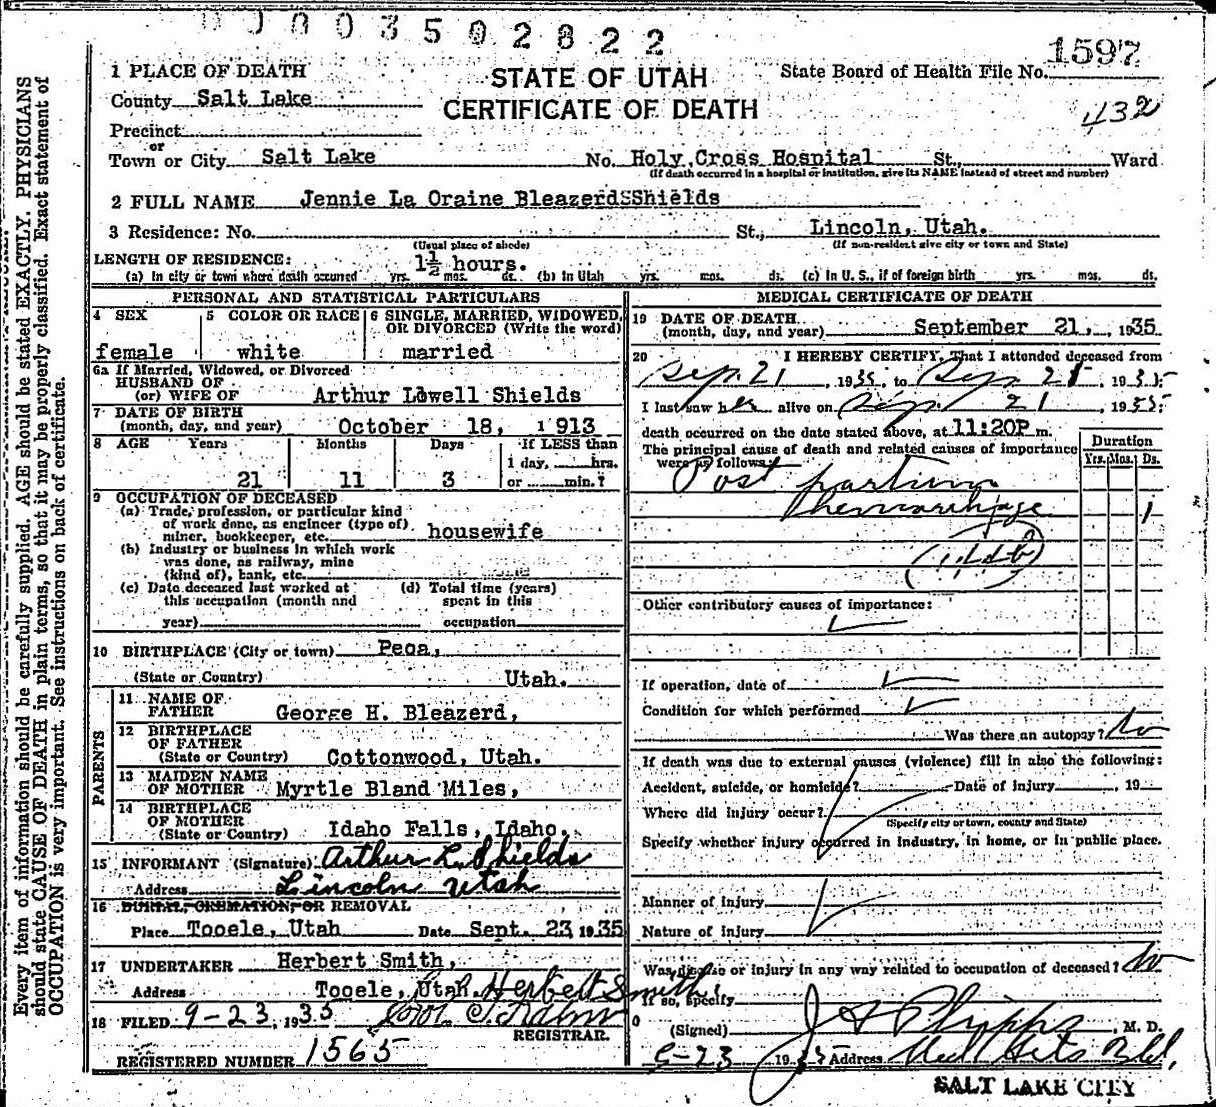 0003502822
1597
1 PLACE OF DEATH
STATE OF UTAH
State Board of Health File No.
County Salt Lake
CERTIFICATE OF DEATH
432
Precinct
or
Town or City Salt Lake No. Holy Cross Hospital St., Ward
(If death occurred in a hospital or institution, give its NAME instead of street and number)
2 FULL NAME Jennie La Oraine Bleazerd Shields
3 Residence: No. St., Lincoln, Utah.
(Usual place of abode) (If non-resident give city or town and State)
LENGTH OF RESIDENCE: 1½ hours.
(a) In city or town where death occurred yrs. mos. ds. (b) In Utah yrs. mos. ds. (c) In U. S., if of foreign birth yrs. mos. ds.
PERSONAL AND STATISTICAL PARTICULARS
4 SEX 5 COLOR OR RACE 6 SINGLE, MARRIED, WIDOWED,
OR DIVORCED (Write the word)
female white married
6a If Married, Widowed, or Divorced
HUSBAND OF
(or) WIFE OF Arthur Lowell Shields
7 DATE OF BIRTH
(month, day, and year) October 18, 1913
8 AGE Years Months Days If LESS than
1 day, hrs.
21 11 3 or min.?
9 OCCUPATION OF DECEASED
(a) Trade, profession, or particular kind
of work done, as engineer (type of)
miner, bookkeeper, etc. housewife
(b) Industry or business in which work
was done, as railway, mine
(kind of), bank, etc.
(c) Date deceased last worked at (d) Total time (years)
this occupation (month and spent in this
year) occupation
10 BIRTHPLACE (City or town) Peoa,
(State or Country) Utah.
PARENTS
11 NAME OF
FATHER George H. Bleazerd,
12 BIRTHPLACE
OF FATHER
(State or Country) Cottonwood, Utah.
13 MAIDEN NAME
OF MOTHER Myrtle Bland Miles,
14 BIRTHPLACE
OF MOTHER
(State or Country) Idaho Falls, Idaho.
15 INFORMANT (Signature) Arthur L. Shields
Address Lincoln Utah
16 BURIAL, CREMATION, OR REMOVAL
Place Tooele, Utah Date Sept. 23 1935
17 UNDERTAKER Herbert Smith,
Address Tooele, Utah. Herbert Smith
18 FILED 9-23, 1935
REGISTRAR.
REGISTERED NUMBER 1565
MEDICAL CERTIFICATE OF DEATH
19 DATE OF DEATH
(month, day, and year) September 21, 1935
20 I HEREBY CERTIFY, That I attended deceased from
Sep. 21, 1935, to Sep 21, 1935
I last saw her alive on Sep 21, 1935.
death occurred on the date stated above, at 11:20P m.
The principal cause of death and related causes of importance
were as follows:
Duration
Yrs. Mos. Ds.
Post partum
hemorrhage 1
Other contributory causes of importance:
If operation, date of
Condition for which performed
Was there an autopsy? No
If death was due to external causes (violence) fill in also the following:
Accident, suicide, or homicide? Date of injury , 19
Where did injury occur?
(Specify city or town, county and State)
Specify whether injury occurred in industry, in home, or in public place.
Manner of injury
Nature of injury
Was disease or injury in any way related to occupation of deceased? No
If so, specify
(Signed) J A Phipps, M. D.
9-23 1935 Address Med Arts Bld.
SALT LAKE CITY
Every item of information should be carefully supplied. AGE should be stated EXACTLY. PHYSICIANS
should state CAUSE OF DEATH in plain terms, so that it may be properly classified. Exact statement of
OCCUPATION is very important. See instructions on back of certificate.